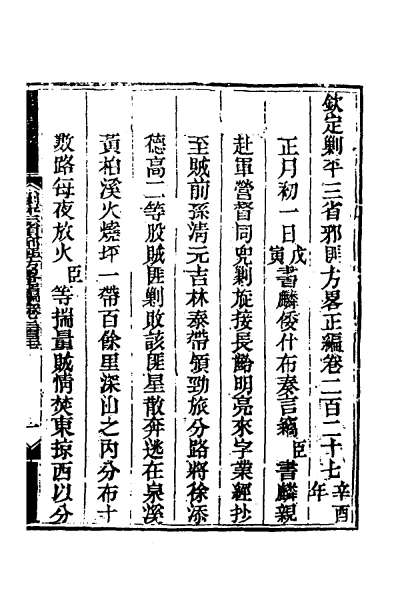 欽定剿平三省邪匪方畧正編卷二百二十七辛酉年
正月初一日戊寅書麟倭什布奏言竊臣書麟親
赴軍營督同兜剿旋接長齡明亮來字業經抄
至賊前孫清元吉林泰帶領勁旅分路將徐添
德高二等股賊匪剿敗該匪星散奔逃在泉溪
黃柏溪火燒坪一帶百餘里深山之內分布十
數路每夜放火臣等揣量賊情焚東掠西以分